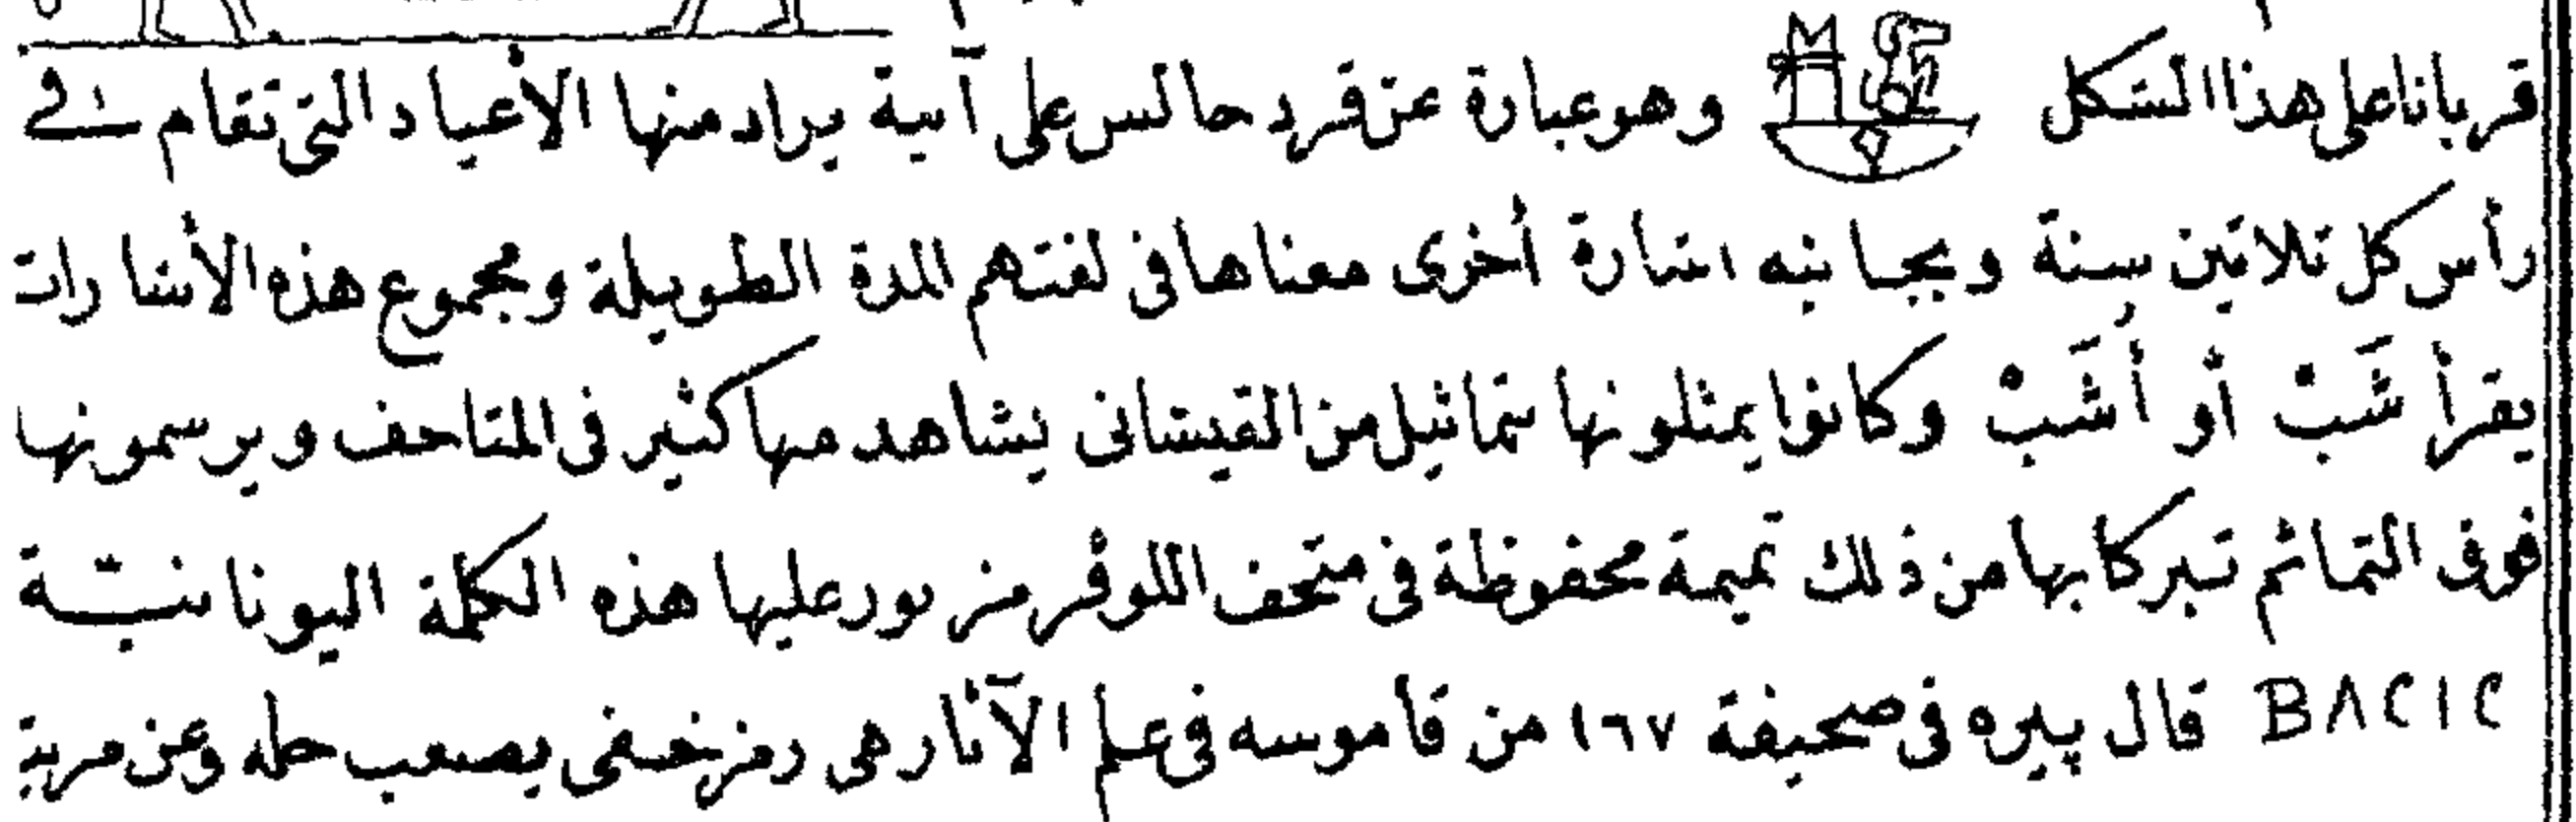 قربانا على هذا الشكل وهو عبارة عن قرد جالس على آنية يراد منها الأعياد التى تقام فى
رأس كل ثلاثين سنة وبجانبه اشارة أخرى معناها فى لغتهم المدة الطويلة ومجموع هذه الأشارات
يقرأ شَبْ أو أُشَبْ وكانوا يمثلونها بتماثيل من القيشانى يشاهد منها كثير فى المتاحف ويرسمونها
فوق التمائم تبركا بها من ذلك تميمة محفوظة فى متحف اللوڤر مزبور عليها هذه الكلمة اليونانية
BACIC قال پيره فى صحيفة ١٦٧ من قاموسه فى علم الآثار هى رمز خفى يصعب حله وعن